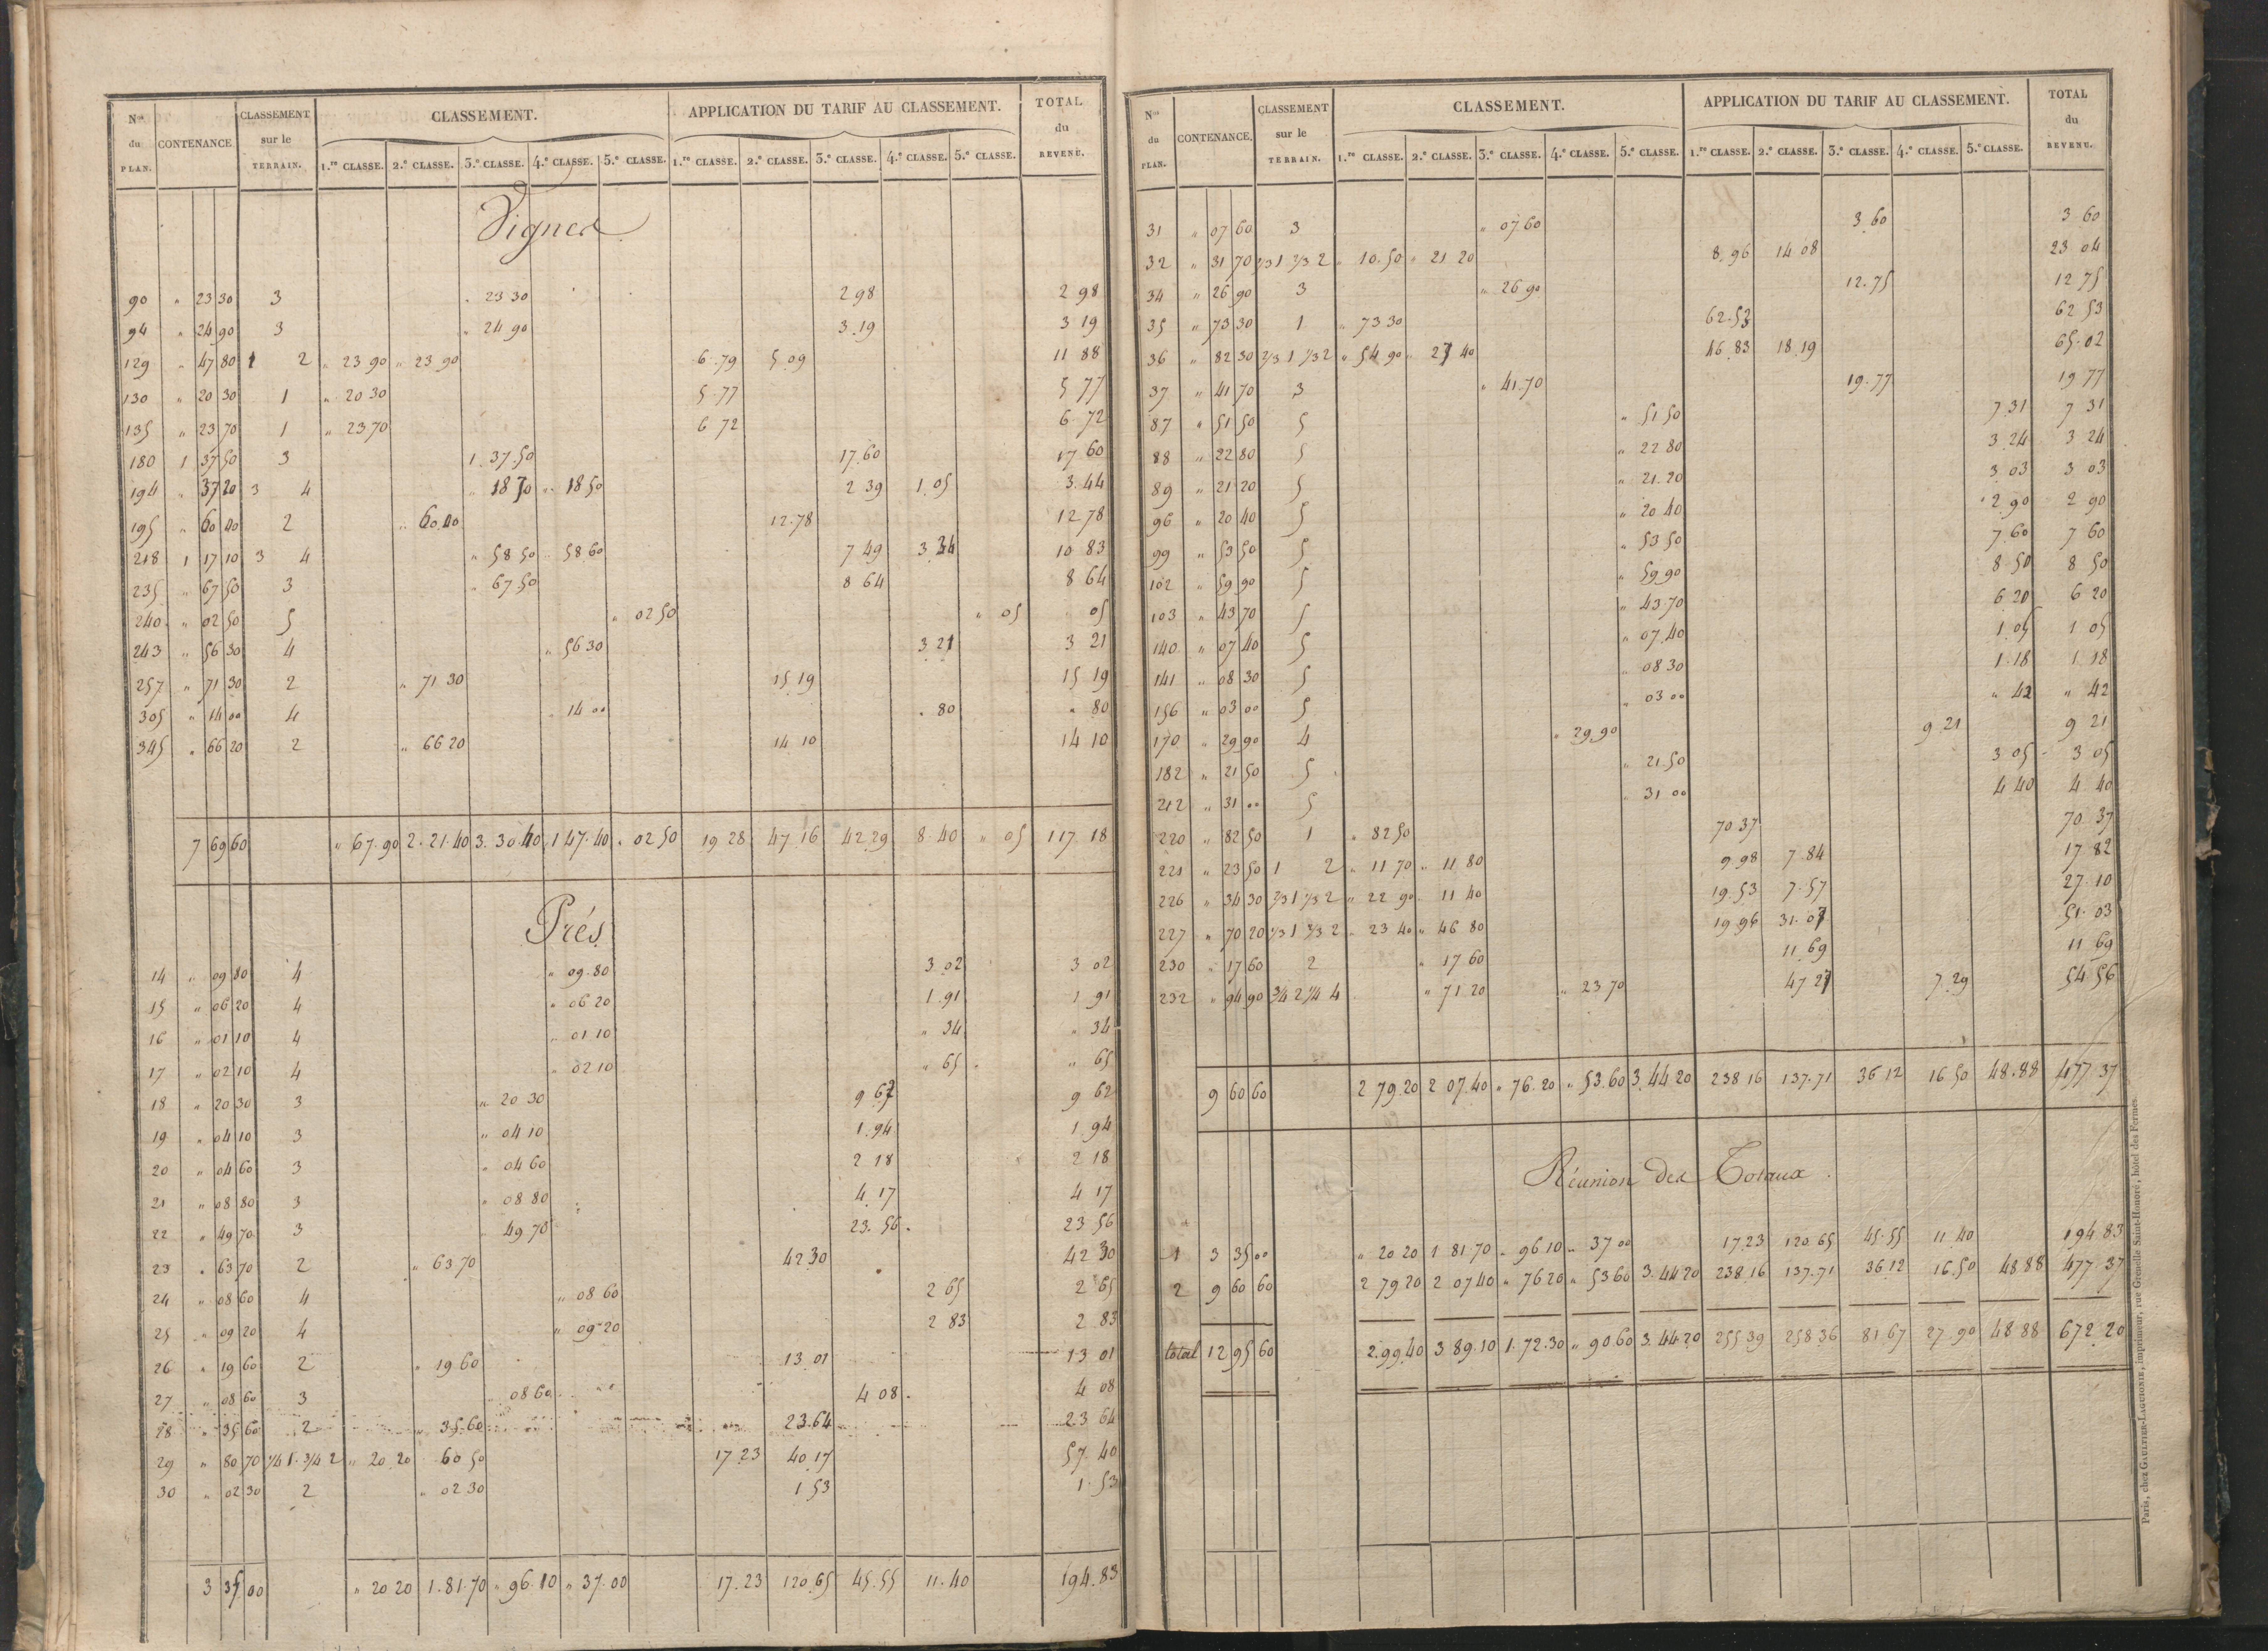 Nos du PLAN. CONTENANCE. CLASSEMENT sur le TERRAIN. CLASSEMENT. APPLICATION DU TARIF AU CLASSEMENT. TOTAL du REVENU.
1.re CLASSE. 2.e CLASSE. 3.e CLASSE. 4.e CLASSE. 5.e CLASSE. 1.re CLASSE. 2.e CLASSE. 3.e CLASSE. 4.e CLASSE. 5.e CLASSE.
Vignes
90 " 23 30 3 " 23 30 2 98 2 98
94 " 24 90 3 " 24 90 3.19 3 19
129 " 47 80 1 2 " 23 90 " 23 90 6.79 5.09 11 88
130 " 20 30 1 " 20 30 5.77 5 77
135 " 23 70 1 " 23 70 6 72 6 72
180 1 37 50 3 1.37.50 17.60 17 60
194 " 37 20 3 4 " 18 70 " 18 50 2 39 1.05 3.44
195 " 60 00 2 " 60.00 12.78 12 78
218 1 17 10 3 4 " 58 50 " 58 60 7 49 3 34 10 83
235 " 67 50 3 " 67 50 8 64 8 64
240 " 02 50 5 " 02 50 " 05 " 05
243 " 56 30 4 " 56 30 3 21 3 21
257 " 71 30 2 " 71 30 15 19 15 19
305 " 14 00 4 " 14 00 " 80 " 80
345 " 66 20 2 " 66 20 14 10 14 10
7 69 60 " 67.90 2.21.40 3.30.40 1 47.40 " 02 50 19 28 47.16 42.29 8.40 " 05 117 18
Prés
14 " 09 80 4 " 09.80 3.02 3 02
15 " 06 20 4 " 06 20 1.91 1 91
16 " 01 10 4 " 01 10 " 34 " 34
17 " 02 10 4 " 02 10 " 65 " 65
18 " 20 30 3 " 20 30 9 62 9 62
19 " 04 10 3 " 04 10 1.94 1 94
20 " 04 60 3 " 04 60 2 18 2 18
21 " 08 80 3 " 08 80 4.17 4 17
22 " 49 70 3 " 49 70 23.56 23 56
23 " 63 70 2 " 63 70 42.30 42 30
24 " 08 60 4 " 08 60 2 65 2 65
25 " 09 20 4 " 09 20 2 83 2 83
26 " 19 60 2 " 19 60 13.01 13 01
27 " 08 60 3 " 08 60 4 08 4 08
28 " 35 60 2 " 35.60 23.64 23 64
29 " 80 70 1/4 1. 3/4 2 " 20.20 60 50 17.23 40.17 57.40
30 " 02 30 2 " 02 30 1 53 1.53
3 35 00 " 20 20 1.81.70 " 96.10 " 37.00 17.23 120.65 45.55 11.40 194.83
Nos du PLAN. CONTENANCE. CLASSEMENT sur le TERRAIN. CLASSEMENT. APPLICATION DU TARIF AU CLASSEMENT. TOTAL du REVENU.
1.re CLASSE. 2.e CLASSE. 3.e CLASSE. 4.e CLASSE. 5.e CLASSE. 1.re CLASSE. 2.e CLASSE. 3.e CLASSE. 4.e CLASSE. 5.e CLASSE.
31 " 07 60 3 " 07 60 3.60 3 60
32 " 31 70 1/3 1 2/3 2 " 10.50 " 21 20 8.96 14 08 23 04
34 " 26 90 3 " 26 90 12.75 12 75
35 " 73 30 1 " 73 30 62.53 62 53
36 " 82 30 2/3 1 1/3 2 " 54 90 " 27 40 46.83 18.19 65.02
37 " 41 70 3 " 41.70 19.77 19 77
87 " 51 50 5 " 51 50 7.31 7 31
88 " 22 80 5 " 22 80 3 24 3 24
89 " 21 20 5 " 21.20 3 03 3 03
96 " 20 40 5 " 20 40 2 90 2 90
99 " 53 50 5 " 53 50 7.60 7 60
102 " 59 90 5 " 59 90 8 50 8 50
103 " 43 70 5 " 43.70 6 20 6 20
140 " 07 40 5 " 07.40 1.05 1 05
141 " 08 30 5 " 08 30 1.18 1.18
156 " 03 00 5 " 03 00 " 42 " 42
170 " 29 90 4 " 29.90 9 21 9 21
182 " 21 50 5 " 21.50 3 05 3 05
212 " 31 00 5 " 31 00 4 40 4 40
220 " 82 50 1 " 82 50 70.37 70 37
221 " 23 50 1 2 " 11 70 " 11 80 9.98 7.84 17 82
226 " 34 30 2/3 1 1/3 2 " 22 90 " 11 40 19.53 7.57 27.10
227 " 70 20 1/3 1 2/3 2 " 23 40 " 46 80 19 96 31.07 51.03
230 " 17 60 2 " 17 60 11.69 11 69
232 " 94 90 3/4 2 1/4 4 " 71 20 " 23 70 47 27 7.29 54 56
9 60 60 2 79.20 2 07.40 " 76.20 " 53.60 3.44.20 238 16 137.71 36 12 16.50 48.88 477 37
Réunion des Totaux.
1 3 35 00 " 20 20 1 81.70 " 96 10 " 37 00 17.23 120 65 45.55 11 40 194 83
2 9 60 60 2 79 20 2 07 40 " 76 20 " 53 60 3.44 20 238.16 137.71 36 12 16.50 48 88 477 37
total 12 95 60 2.99.40 3 89.10 1.72.30 " 90 60 3.44 20 255 39 258 36 81 67 27.90 48 88 672.20
Paris, chez GAULTIER-LAGUIONIE, imprimeur, rue Grenelle Saint-Honoré, hôtel des Fermes.